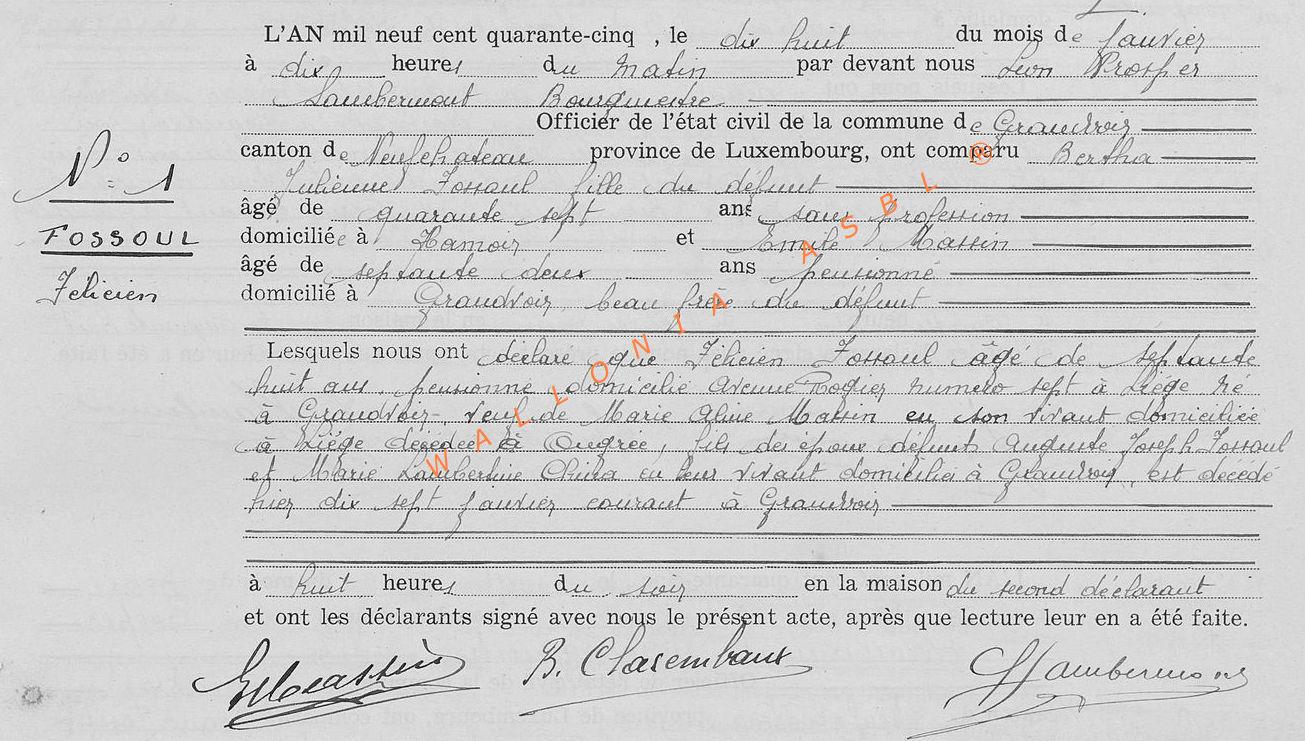 L'AN mil neuf cent quarante-cinq , le dix huit du mois de Janvier
à dix heures du matin par devant nous Léon Prosper
Lambermont Bourgmestre
Officier de l'état civil de la commune de Grandvoir
canton de Neufchateau province de Luxembourg, ont comparu Bertha
Julienne Fossoul fille du défunt
âgé de quarante sept ans sans profession
domiciliée à Hamoir et Emile Massin
âgé de septante deux ans pensionné
domicilié à Grandvoir, beau frère du défunt
Lesquels nous ont déclaré que Félicien Fossoul âgé de septante
huit ans, pensionné domicilié avenue Rogier numero sept à Liége né
à Grandvoir - veuf de Marie Aline Massin en son vivant domiciliée
à Liége décédée à Ougrée, fils des époux défunts Auguste Joseph Fossoul
et Marie Lambertine China en leur vivant domiciliés à Grandvoir, est décédé
hier dix sept janvier courant à Grandvoir
à huit heures du soir en la maison du second déclarant
et ont les déclarants signé avec nous le présent acte, après que lecture leur en a été faite.
N° 1
FOSSOUL
Félicien
EMassin B. Lambermont
WALLONIA ASBL ®